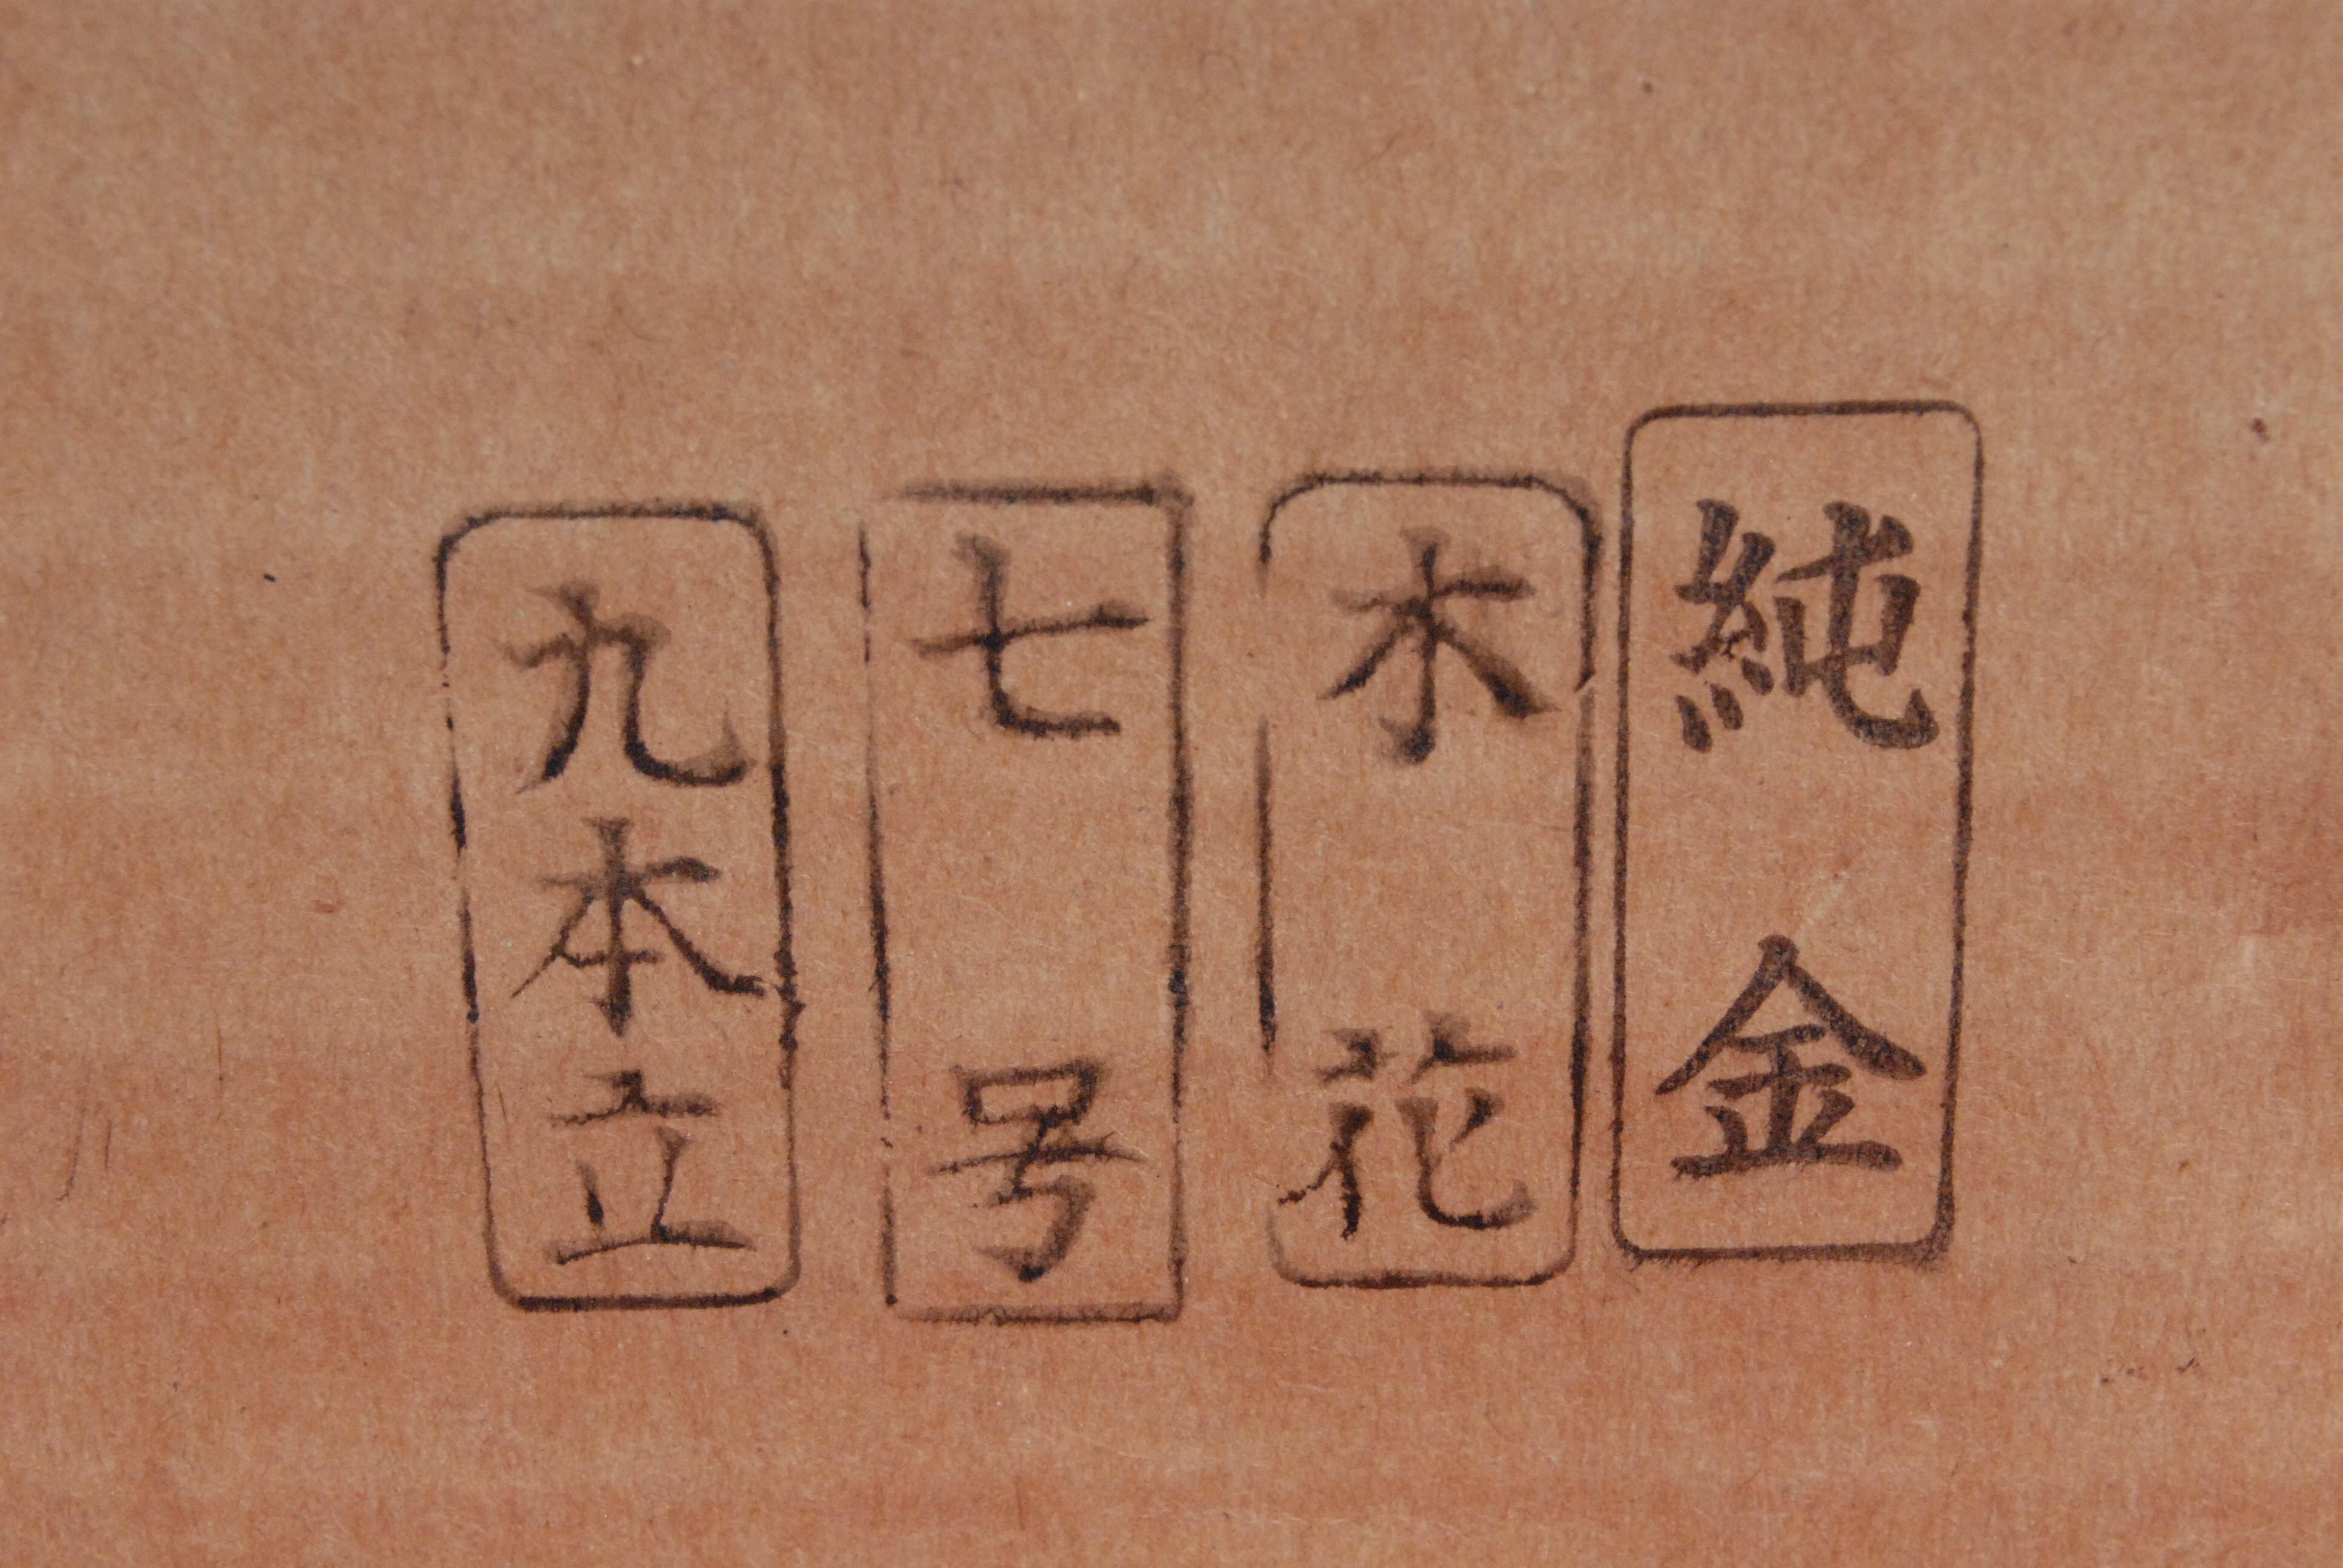 純金
木花
七号
九本立